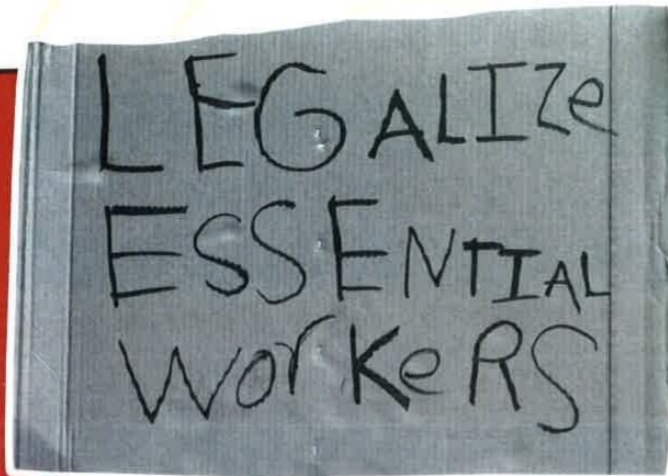 LEGALIZe
ESSENTIAL
WorKeRS